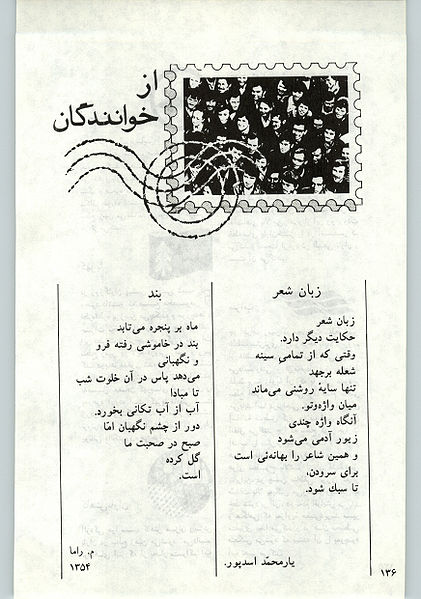 از
خوانندگان
زبان شعر
زبان شعر
حکایت دیگر دارد.
وقتی که از تمامی سینه
شعله برجهد
تنها سایهٔ روشنی می‌ماند
میان واژه‌وتو.
آنگاه واژه چندی
زیور آدمی می‌شود
و همین شاعر را بهانه‌ئی است
برای سرودن،
تا سبك شود.
یارمحمّد اسدپور.
بند
ماه بر پنجره می‌تابد
بند در خاموشی رفته فرو
و نگهبانی
می‌دهد پاس در آن خلوت شب
تا مبادا
آب از آب تکانی بخورد.
دور از چشم نگهبان امّا
صبح در صحبت ما
گل کرده
است.
م. راما
۱۳۵۴
۱۳۶